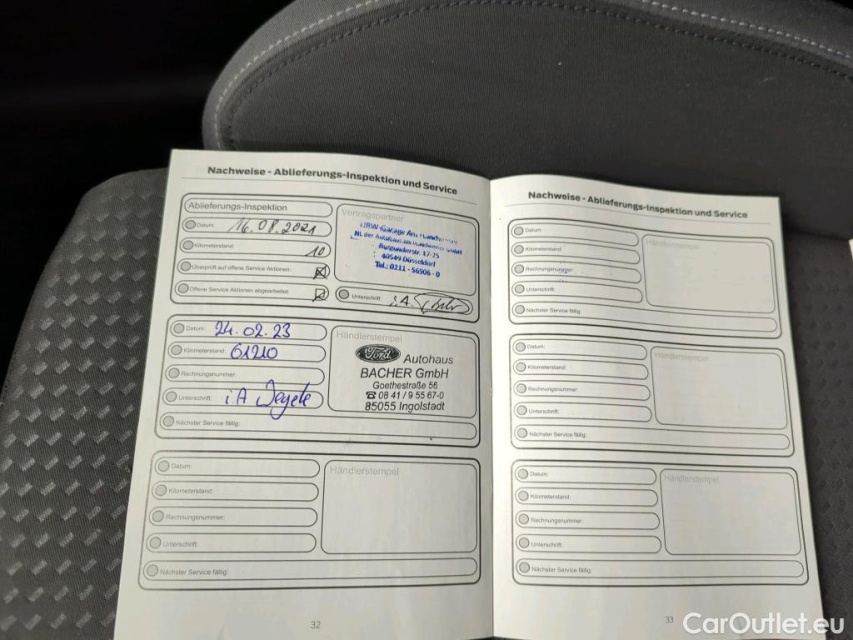 Nachweise - Ablieferungs-Inspektion und Service
Ablieferungs-Inspektion
Datum: 16.08.2021
Kilometerstand: 10
Überprüft auf offene Service Aktionen:
Offene Service Aktionen abgearbeitet:
Vertragspartner
NL der
40549 Düsseldorf
Tel.: 0211 - 56506 - 0
Unterschrift: i.A.
Datum: 24.02.23
Kilometerstand: 61210
Rechnungsnummer:
Unterschrift: iA
Nächster Service fällig:
Händlerstempel
Ford Autohaus
BACHER GmbH
Goethestraße 56
☎ 08 41 / 9 55 67-0
85055 Ingolstadt
Datum:
Kilometerstand:
Rechnungsnummer:
Unterschrift:
Nächster Service fällig:
Händlerstempel
32
Nachweise - Ablieferungs-Inspektion und Service
Datum:
Kilometerstand:
Rechnungsnummer:
Unterschrift:
Nächster Service fällig:
Händlerstempel
Datum:
Kilometerstand:
Rechnungsnummer:
Unterschrift:
Nächster Service fällig:
Händlerstempel
Datum:
Kilometerstand:
Rechnungsnummer:
Unterschrift:
Nächster Service fällig:
Händlerstempel
33
CarOutlet.eu